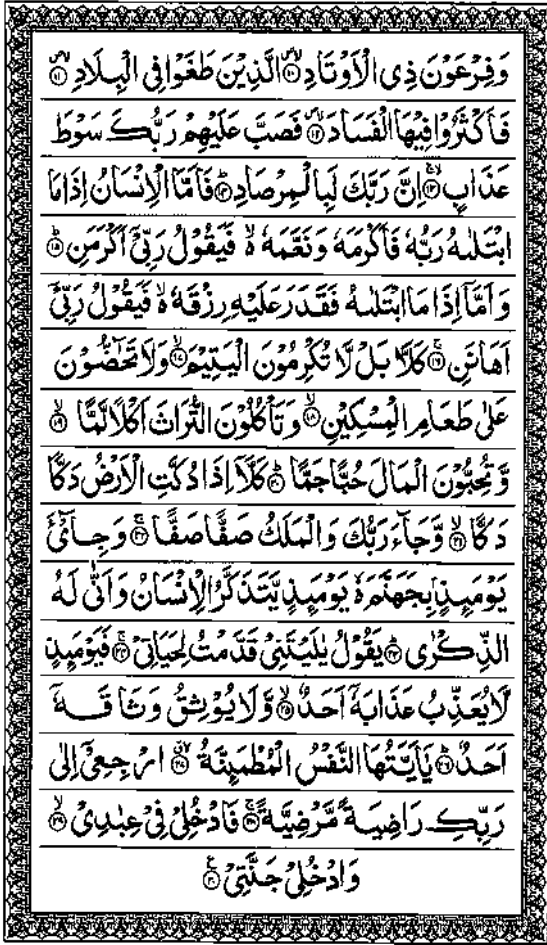 وَفِرْعَوْنَ ذِی الْاَوْتَادِ ۪ۙ﴿۱۰﴾ الَّذِیْنَ طَغَوْا فِی الْبِلَادِ ۪ۙ﴿۱۱﴾
فَاَكْثَرُوْا فِیْهَا الْفَسَادَ ۪ۙ﴿۱۲﴾ فَصَبَّ عَلَیْهِمْ رَبُّكَ سَوْطَ
عَذَابٍ ۚۙ﴿۱۳﴾ اِنَّ رَبَّكَ لَبِالْمِرْصَادِ ؕ﴿۱۴﴾ فَاَمَّا الْاِنْسَانُ اِذَا مَا
ابْتَلٰىهُ رَبُّهٗ فَاَكْرَمَهٗ وَنَعَّمَهٗ ۬ۙ فَیَقُوْلُ رَبِّیْۤ اَكْرَمَنِ ؕ﴿۱۵﴾
وَاَمَّاۤ اِذَا مَا ابْتَلٰىهُ فَقَدَرَ عَلَیْهِ رِزْقَهٗ ۬ۙ فَیَقُوْلُ رَبِّیْۤ
اَهَانَنِ ۚ﴿۱۶﴾ كَلَّا بَلْ لَّا تُكْرِمُوْنَ الْیَتِیْمَ ۙ﴿۱۷﴾ وَلَا تَحٰٓضُّوْنَ
عَلٰی طَعَامِ الْمِسْكِیْنِ ۙ﴿۱۸﴾ وَتَاْكُلُوْنَ التُّرَاثَ اَكْلًا لَّمًّا ۙ﴿۱۹﴾
وَّتُحِبُّوْنَ الْمَالَ حُبًّا جَمًّا ؕ﴿۲۰﴾ كَلَّاۤ اِذَا دُكَّتِ الْاَرْضُ دَكًّا
دَكًّا ۙ﴿۲۱﴾ وَّجَآءَ رَبُّكَ وَالْمَلَكُ صَفًّا صَفًّا ۚ﴿۲۲﴾ وَجِایْٓءَ
یَوْمَىِٕذٍۭ بِجَهَنَّمَ ۬ۙ یَوْمَىِٕذٍ یَّتَذَكَّرُ الْاِنْسَانُ وَاَنّٰی لَهُ
الذِّكْرٰی ؕ﴿۲۳﴾ یَقُوْلُ یٰلَیْتَنِیْ قَدَّمْتُ لِحَیَاتِیْ ۚ﴿۲۴﴾ فَیَوْمَىِٕذٍ
لَّا یُعَذِّبُ عَذَابَهٗۤ اَحَدٌ ۙ﴿۲۵﴾ وَّلَا یُوْثِقُ وَثَاقَهٗۤ
اَحَدٌ ؕ﴿۲۶﴾ یٰۤاَیَّتُهَا النَّفْسُ الْمُطْمَىِٕنَّةُ ۗۖ﴿۲۷﴾ ارْجِعِیْۤ اِلٰی
رَبِّكِ رَاضِیَةً مَّرْضِیَّةً ۚ﴿۲۸﴾ فَادْخُلِیْ فِیْ عِبٰدِیْ ۙ﴿۲۹﴾
وَادْخُلِیْ جَنَّتِیْ ﴿۳۰﴾